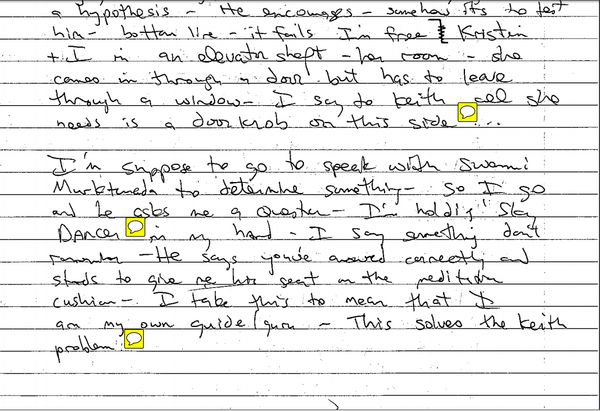 a hypothesis – He encourages – somehow it's to test
him – bottom line – it fails I'm free } Kristin
+ I in an elevator shaft – her room – she
comes in through a door but has to leave
through a window – I say to Keith all she
needs is a doorknob on this side ...
I'm suppose to go to speak with Swami
Muktananda to determine something – so I go
and he asks me a question – I'm holding "Sky
DANCER" in my hand – I say something don't
remember – He says you've answered correctly and
stands to give me his seat on the meditation
cushion – I take this to mean that I
am my own guide/guru – This solves the Keith
problem.